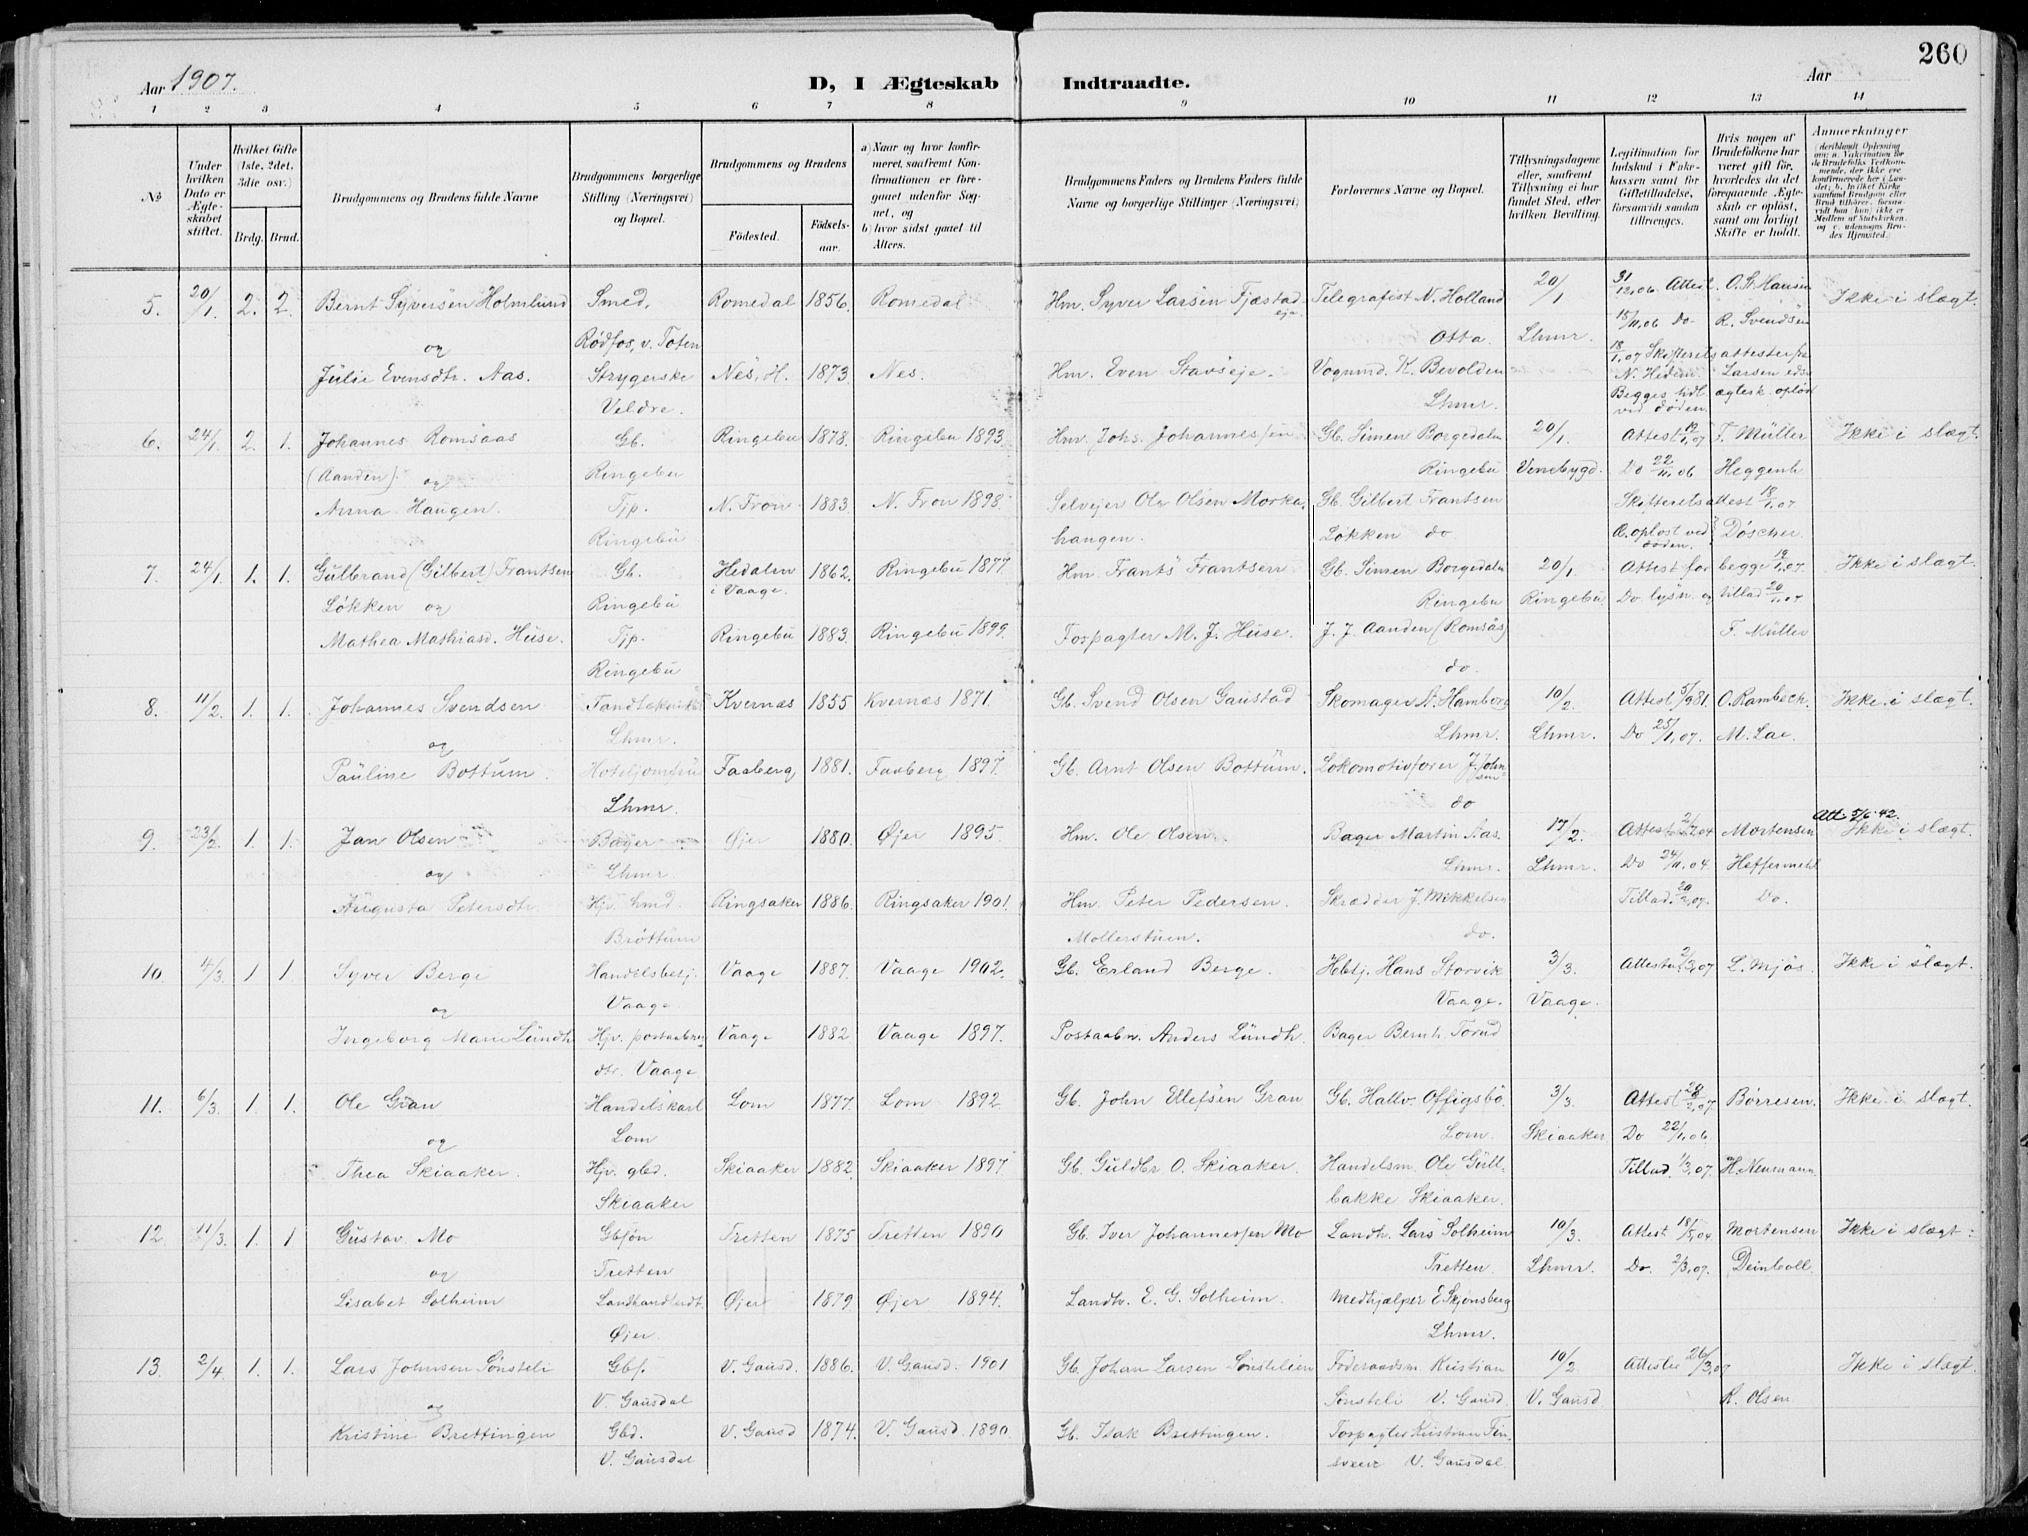 260
Aar 1907.
D, I Ægteskab Indtraadte.
Aar
1 2 3 4 5 6 7 8 9 10 11 12 13 14
№
Under hvilken Dato er Ægteskabet stiftet.
Hvilket Gifte (1ste, 2det, 3die osv.)
Brdg. Brud.
Brudgommens og Brudens fulde Navne
Brudgommens borgerlige Stilling (Næringsvei) og Bopæl.
Brudgommens og Brudens
Fødested. Fødselsaar.
a) Naar og hvor konfirmeret, saafremt Konfirmationen er foregaaet udenfor Sognet, og
b) hvor sidst gaaet til Alters.
Brudgommens Faders og Brudens Faders fulde Navne og borgerlige Stillinger (Næringsvei)
Forlovernes Navne og Bopæl.
Tillysningsdagene eller, saafremt Tillysning ei har fundet Sted, efter hvilken Bevilling.
Legitimation for Indskud i Enkekassen samt for Giftetilladelse, forsaavidt saadan tiltrænges.
Hvis nogen af Brudefolkene har været gift før, hvorledes da det foregaaende Ægteskab er opløst, samt om lovligt Skifte er holdt.
Anmerkninger
(deriblandt Oplysning om: a. Vakcination for de Brudefolks Vedkommende, der ikke ere konfirmerede her i Landet; b. hvilket Kirkesamfund Brudgom eller Brud tilhører, forsaavidt han (hun) ikke er Medlem af Statskirken, og c. udensogns Brudes Hjemsted.
5. 20/1. 2. 2. Bernt Syversen Holmlund Smed, Romedal 1856. Romedal Hm. Syver Larsen Fjæstad eje Telegrafist N. Holland 20/1 31/12.06 Attest O. St. Hansen Ikke i slægt.
og Rødfos, v. Toten Otta. Lhmr. 15/11.06 Do R. Svendsen
18/1.07 Skifterets attester fra
Julie Evensdtr. Aas. Strygerske Nes, H. 1873. Nes. Hm. Even Stavseje. Vognmd. K. Bevolden N. Hedem. Larsen
Veldre. Lhmr. Begges tidl. ægtesk. opløst
ved døden.
6. 24/1. 2. 1. Johannes Romsaas Gb. Ringebu 1878. Ringebu 1893. Hm. Johs. Johannessen Gb. Simen Borgedalen 20/1. Attest 19/1.07 F. Müller Ikke i slægt.
(Aanden) og Ringebu Ringebu Venebygd. Do 22/11.06 Heggenh
Anna Haugen. Tjp. N. Fron 1883. N. Fron 1898. Selvejer Ole Olsen Morka Gb. Gilbert Frantsen Skifteretsattest 18/1.07
Ringebu haugen. Løkken do Æ. opløst ved døden. Døscher.
7. 24/1. 1. 1. Gulbrand (Gilbert) Frantsen Gb. Hedalen i Vaage. 1862. Ringebu 1877. Hm. Frants Frantsen Gb. Simen Borgedalen 20/1 Attest for begge 19/1.07. Ikke i slægt.
Løkken og Ringebu Ringebu Ringebu Do lysn. og tillad 20/1.07
Mathea Mathiasd. Huse. Tjp. Ringebu 1883. Ringebu 1899. Forpagter M. J. Huse. J. J. Aanden (Romsås) F. Müller
Ringebu do.
8. 11/2. 1. 1. Johannes Svendsen Tandtekniker Kvernæs 1855 Kvernæs 1871. Gb. Svend Olsen Gaustad Skomager A. Hamborg 10/2. Attest 5/9 81. O. Rambech. Ikke i slægt.
og Lhmr. Lhmr. Lhmr. Do 25/1.07. M. Lae.
Pauline Bottum. Hoteljomfru Faaberg 1881. Faaberg 1897. Gb. Arnt Olsen Bottum. Lokomotivfører J. Johnsen
Lhmr. do
9. 23/2. 1. 1. Jan Olsen Bager Øjer 1880. Øjer 1895. Hm. Ole Olsen. Bager Martin Aas. 17/2. Attest Mortensen Att. 5/6 42. Ikke i slægt.
og Lhmr. Lhmr. Lhmr. Do 24/11.04. Heffermehl
Augusta Petersdtr. Hjv. hmd. Ringsaker 1886. Ringsaker 1901. Hm. Peter Pedersen. Skrædder J. Mikkelsen Tillad. 20/2.07. Do.
Brøttum Mollerstuen. do.
10. 4/3. 1. 1. Syver Berge Handelsbetj. Vaage 1887. Vaage 1902. Gb. Erland Berge. Hbtj. Hans Storvik 3/3. Attester 2/3.07 L. Mjøs. Ikke i slægt.
og Vaage. Vaage. Vaage.
Ingeborg Marie Lundh Hjv. postaabner Vaage 1882 Vaage 1897. Postaabn. Anders Lundh. Bager Bernh. Torud
dtr. Vaage
11. 6/3. 1. 1. Ole Gran Handelskarl Lom 1877. Lom 1892. Gb. John Ellefsen Gran Gb. Hallv. Offigsbø. 3/3. Attest 28/2.07. Børresen. Ikke i slægt.
og Lom Lom. Skiaaker Do 22/1.06.
Thea Skiaaker. Hjv. gbd. Skiaaker 1882. Skiaaker 1897. Gb. Guldbr. O. Skiaaker. Handelsm. Ole Gull- Tillad 1/3.07. H. Neumann.
Skiaaker bakke Skiaaker.
12. 11/3. 1. 1 Gustav. Mo Gbsøn Tretten 1875 Tretten 1890 Gb. Iver Johannessen Mo Landh. Lars Solheim 10/3. Attest 18/5.04 Mortensen Ikke i slægt.
og Tretten Tretten. Lhmr. Do. 2/3.07. Deinboll.
Lisabet Solheim Landhandlerdt. Øjer 1879 Øjer 1894. Landh. E. G. Solheim. Medhjælper E. Skjønsberg
Øjer. Lhmr.
13. 2/4. 1. 1. Lars Johnsen Sønsteli Gbs. V. Gausd. 1886. V. Gausd. 1901 Gb. Johan Larsen Sønstelien Føderaadsm. Kristian 10/2. Attester 26/3.07 Ikke i slægt.
og V. Gausdal Sønsteli V. Gausd. V. Gausd R. Olsen
Kristine Brettingen Gbd. V. Gausd 1874. V. Gausd. 1890. Gb. Isak Brettingen. Forpagter Kristian
V. Gausdal V. Gausdal